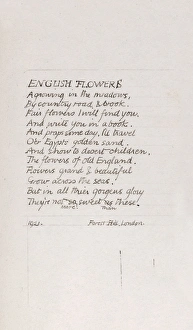 ENGLISH FLOWERS
A growing in the meadows,
By country road, & brook.
Fair flowers I will find you,
And write you in a book.
And praps some day, I'll travel
O'er Egypts golden sand.
And show to desert children,
The flowers of old England.
Flowers grand & beautiful
Grow across the seas!
But in all their gorgeus glory
They're not so sweet as these!
more than
1921. Forest Hill, London.